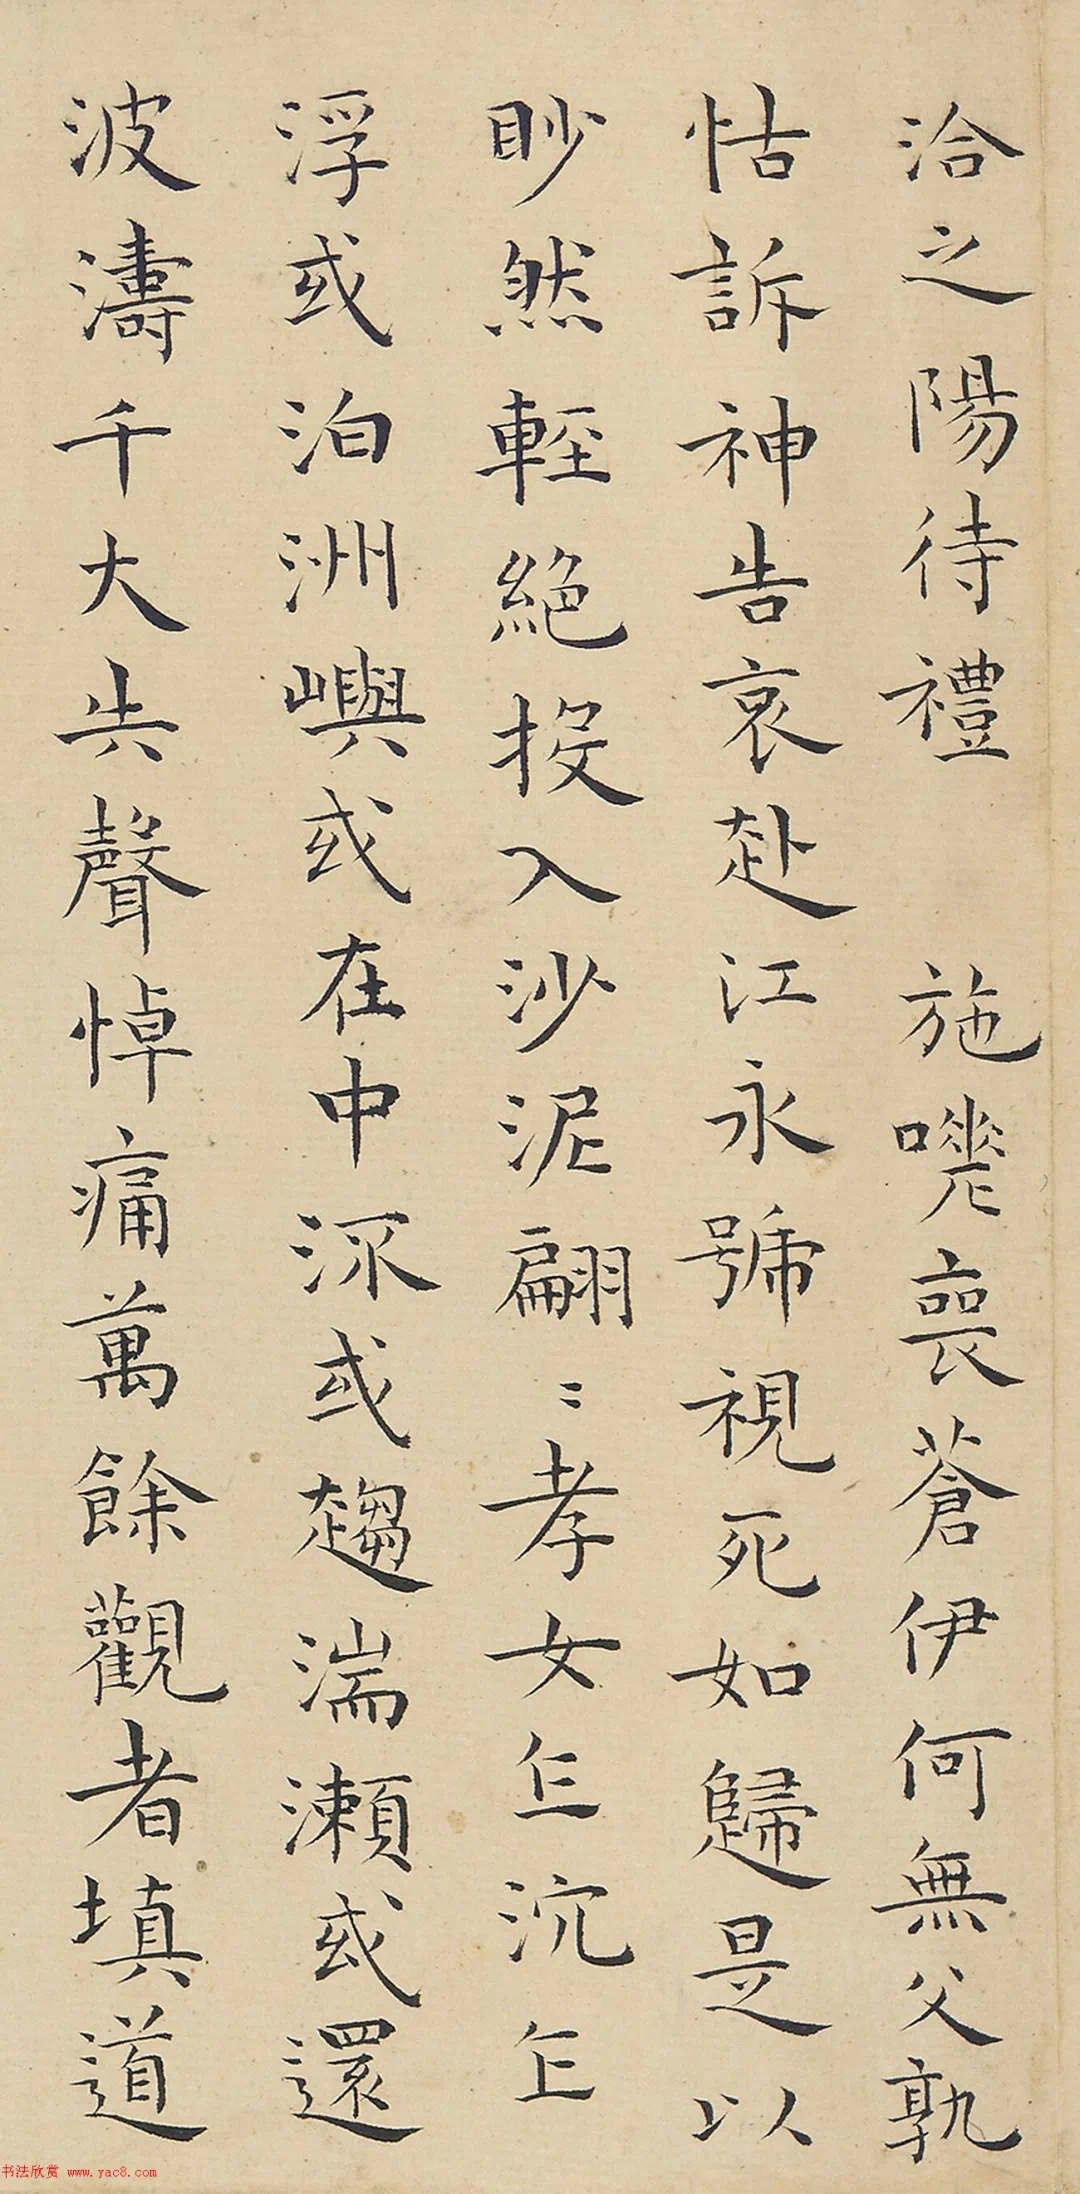 洽之陽待禮 施嘵喪蒼伊何無父孰
怙訴神告哀赴江永號視死如歸是以
眇然輕絕投入沙泥翩〻孝女乍沉乍
浮或泊洲嶼或在中流或趨湍瀨或還
波濤千大共聲悼痛萬餘觀者填道
书法欣赏 www.yac8.com